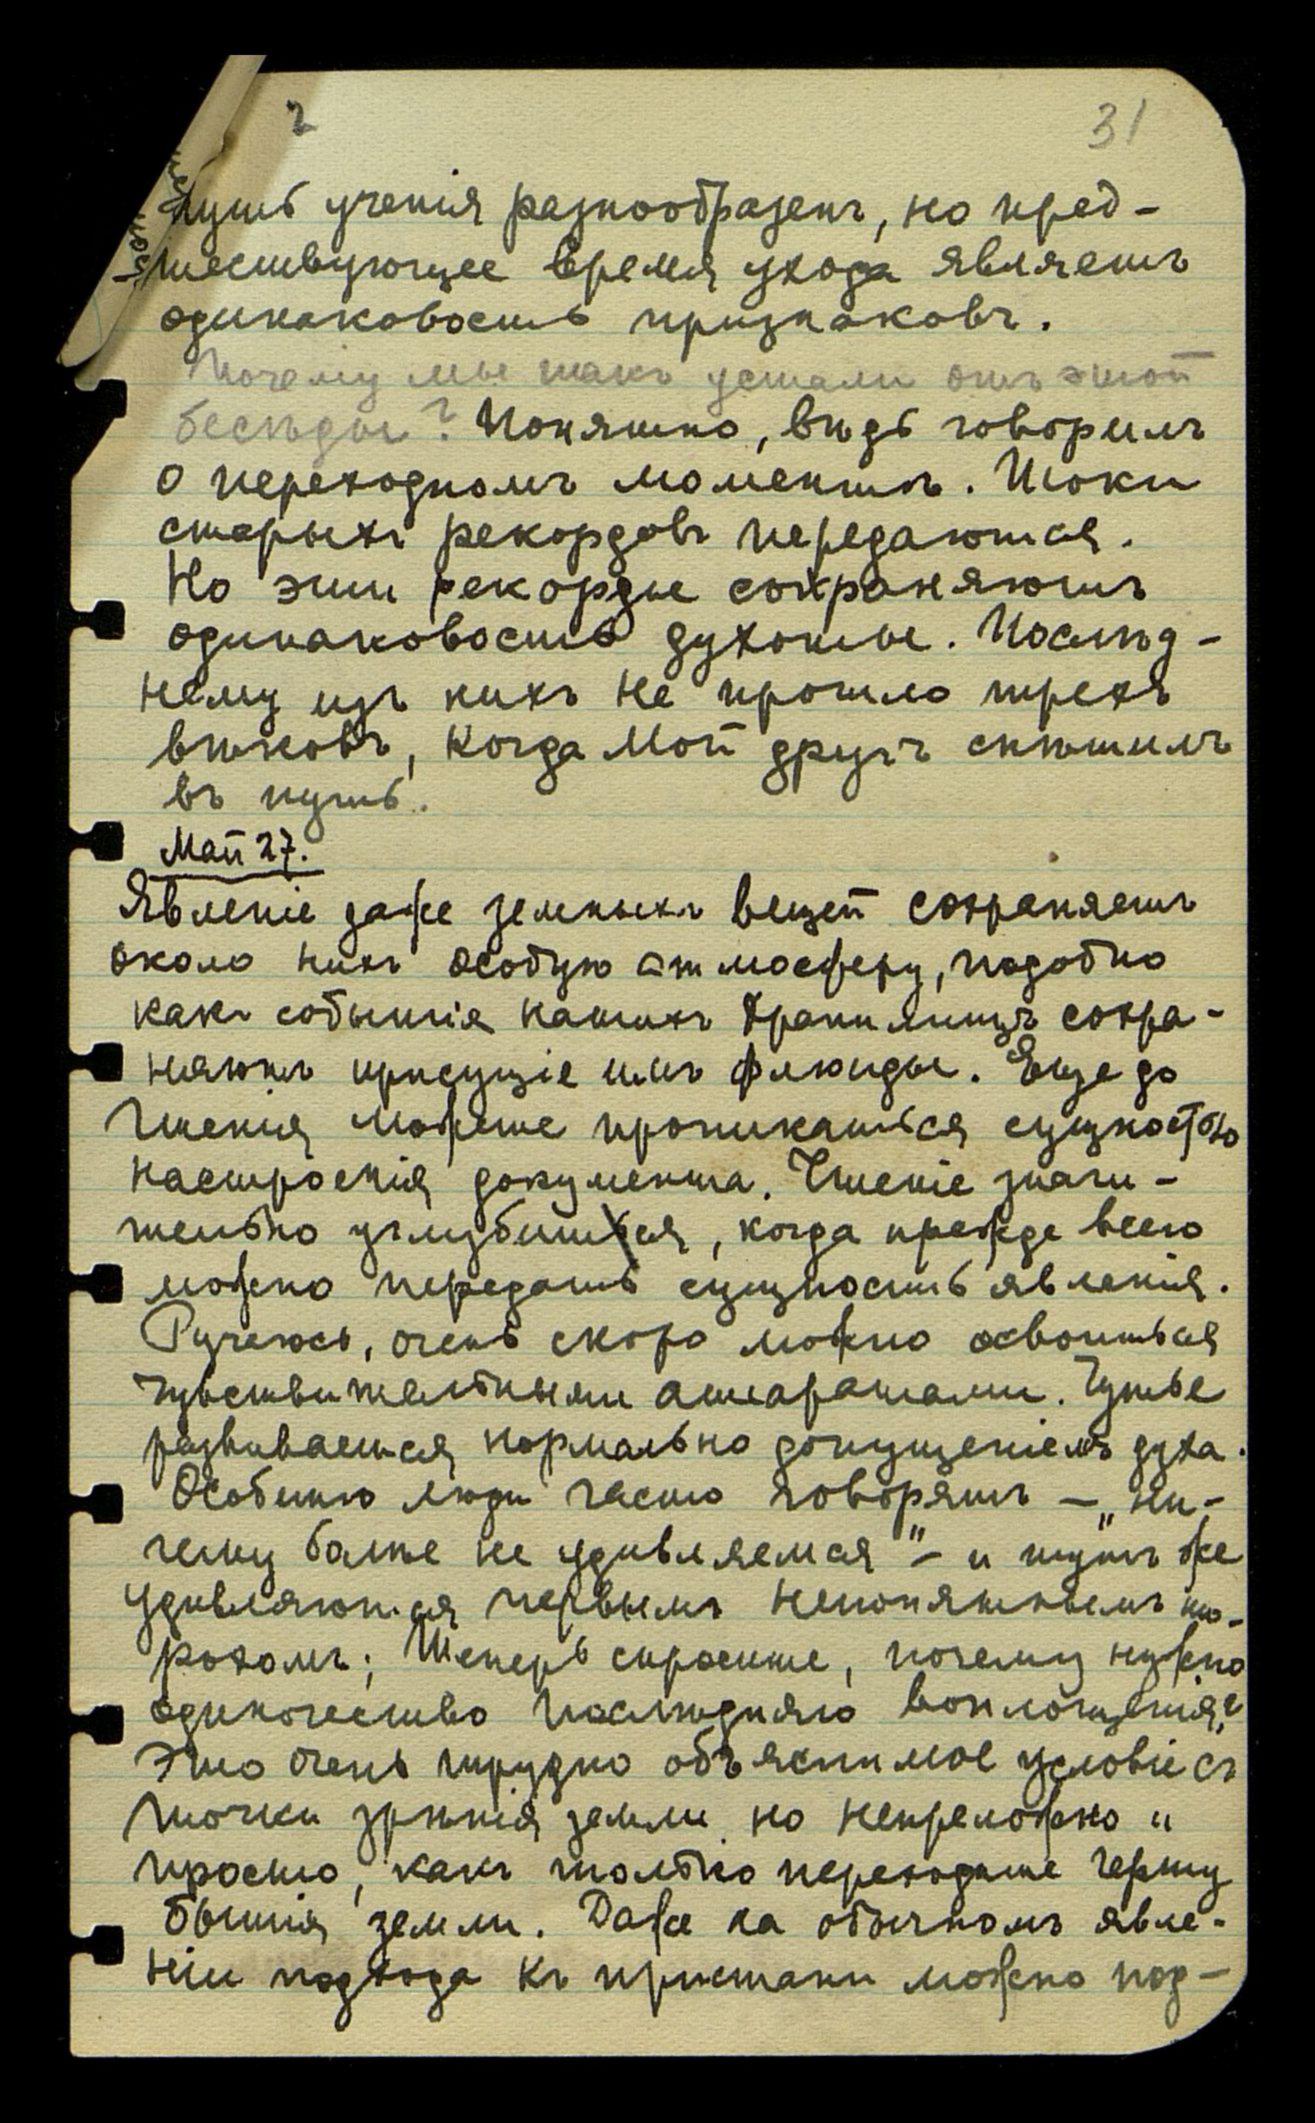 2
31
путь ученія разнообразенъ, но пред-
шествующее время ухода являетъ
одинаковость признаковъ.
Почему мы такъ устали отъ этой
бесѣды? Понятно, вѣдь говоримъ
о переходномъ моментѣ. Токи
старыхъ рекордовъ передаются.
Но эти рекорды сохраняютъ
одинаковость духоты. Послѣд-
нему изъ нихъ не прошло трехъ
вѣковъ, когда Мой другъ спѣшилъ
въ путь.
Май 27.
Явленіе даже земныхъ вещей сохраняетъ
около нихъ особую атмосферу, подобно
какъ событія нашихъ Хранилищъ сохра-
няютъ присущіе имъ флюиды. Еще до
чтенія можете проникаться сущностью
настроенія документа. Чтеніе значи-
тельно углубится, когда прежде всего
можно передать сущность явленія.
Ручаюсь, очень скоро можно освоиться
чувствительными аппаратами. Чутье
развивается нормально допущеніемъ духа.
Особенно люди часто говорятъ – „ни-
чему болѣе не удивляемся" – и тутъ же
удивляются первымъ непонятнымъ шо-
рохомъ; Теперь спросите, почему нужно
одиночество послѣдняго воплощенія?
Это очень трудно объяснимое условіе съ
точки зрѣнія земли но непреложно и
просто, какъ только переходите черту
бытія земли. Даже на обычномъ явле-
ніи подхода къ пристани можно под-